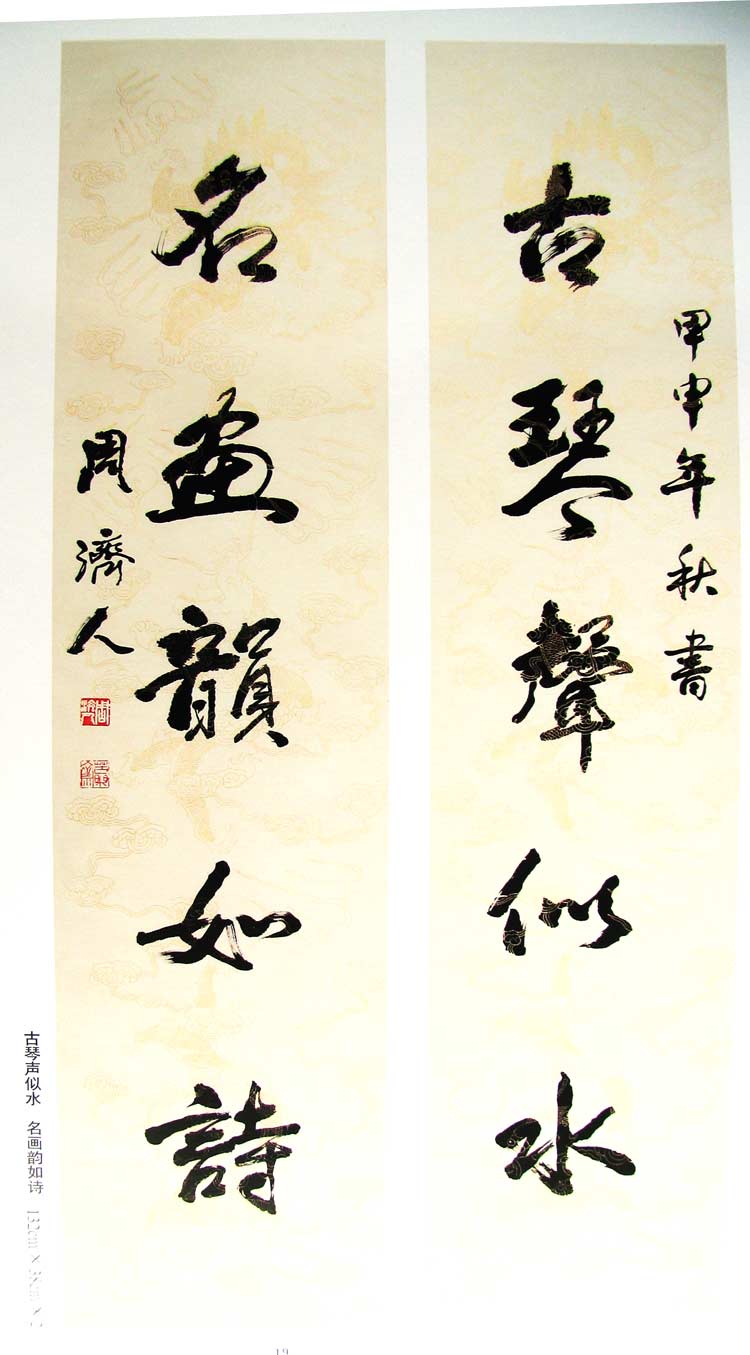 甲申年秋書
古琴聲似水
名畫韻如詩
周濟人
古琴声似水 名画韵如诗 132cm×